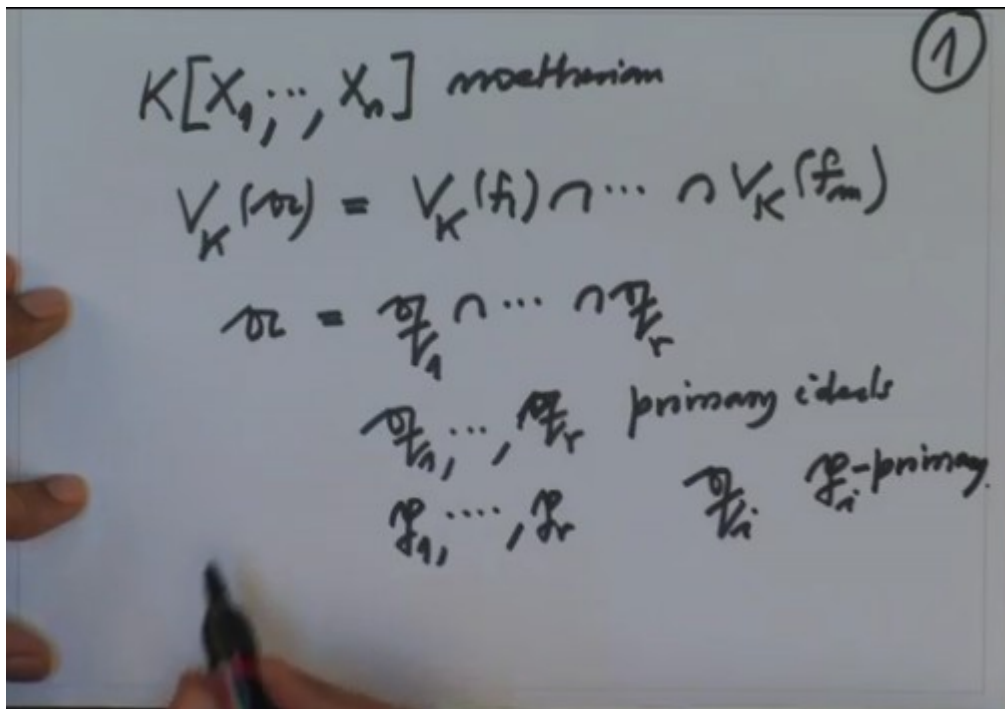 ①
K[X₁, ..., Xₙ] noetherian
V_K(𝔞) = V_K(f₁) ∩ ... ∩ V_K(fₘ)
𝔞 = 𝔮₁ ∩ ... ∩ 𝔮ᵣ
𝔮₁, ..., 𝔮ᵣ primary ideals
𝔭₁, ..., 𝔭ᵣ 𝔮ᵢ 𝔭ᵢ-primary.